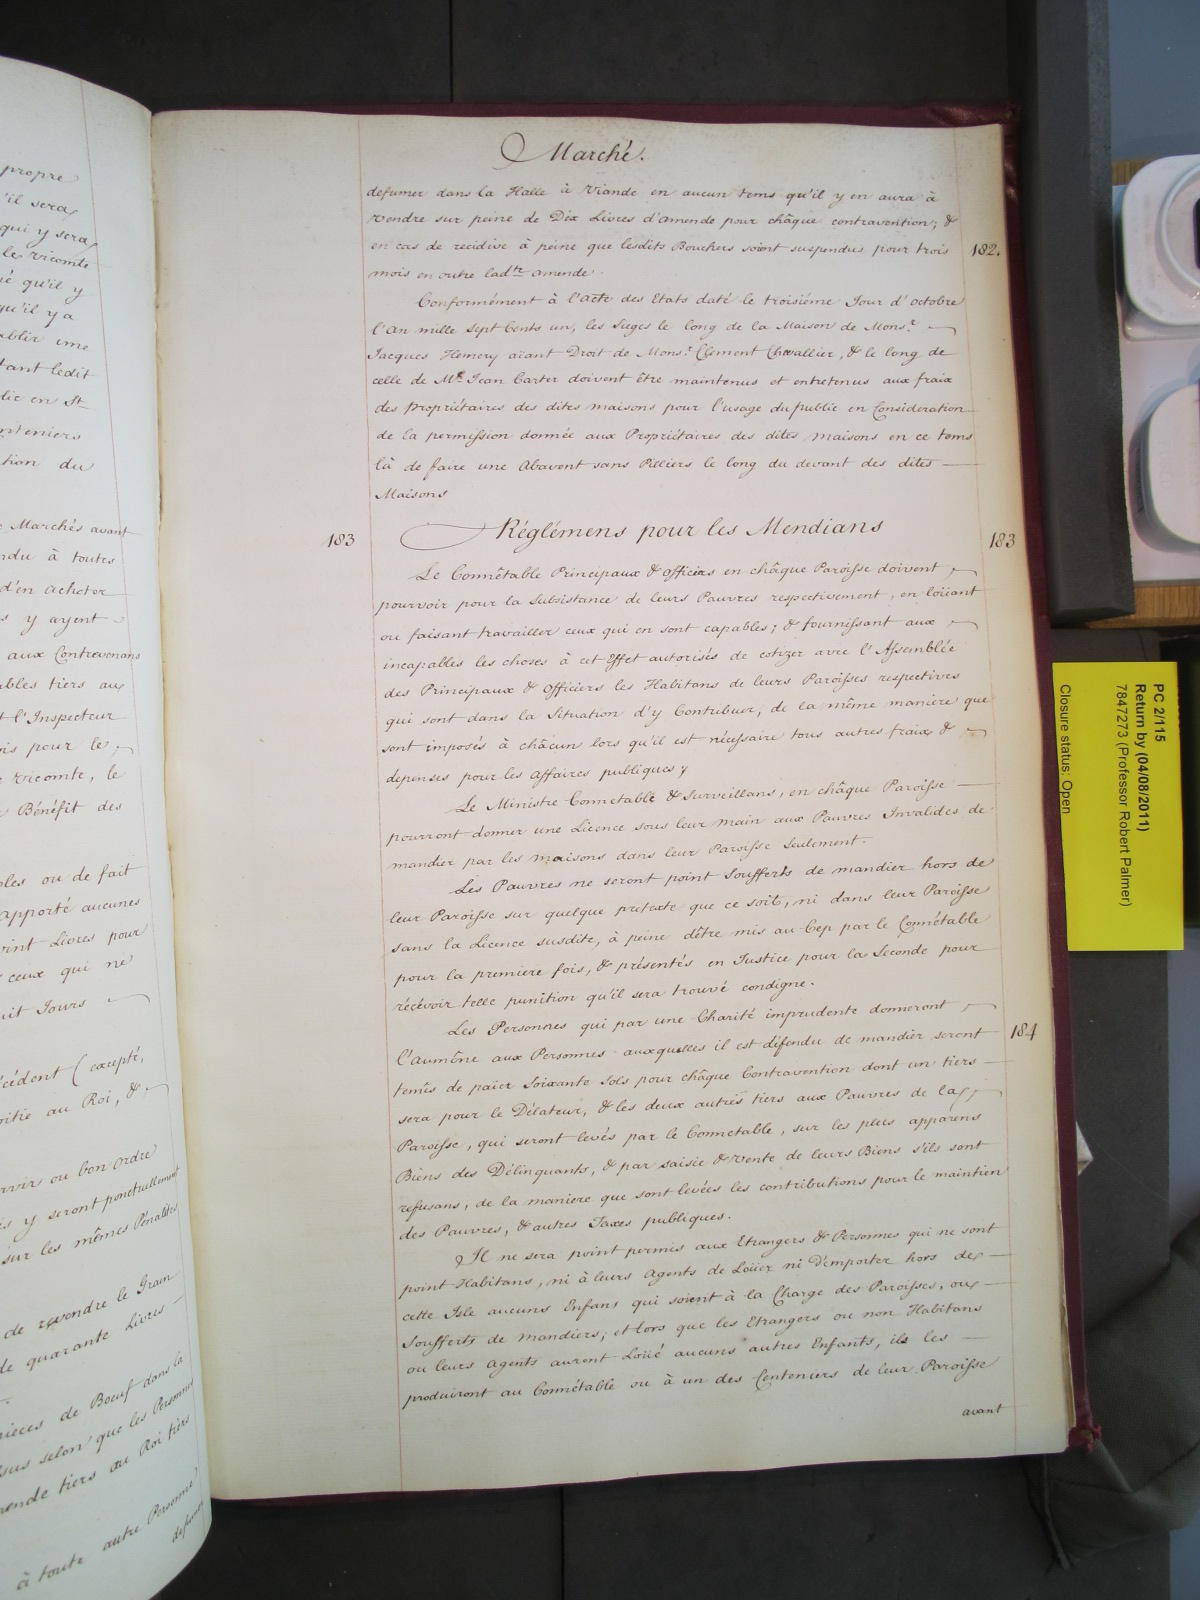 propre
qu'il sera
qui y sera
le Vicomte
né qu'il y
qu'il y a
établir une
tant ledit
lic en St
nteniers
tion du
Marchés avant
ndu à toutes
d'en acheter
s y ayent
aux Contrevenans
ables tiers au
t l'Inspecteur
is pour le
Vicomte, le
Bénéfit des
bles ou de fait
apporté aucunes
vint Livres pour
ceux qui ne
uit Jours
cédent (excepté,
oitié au Roi, &
rvir ou bon ordre
és y seront ponctuellement
sur les mêmes Pénalités
de revendre le Grain
de quarante Livres
pieces de Boeuf dans la
sus selon que les Personnes
mende tiers au Roi tiers
à toute autre Personne
defumer
Marché.
defumer dans la Halle à Viande en aucun tems qu'il y en aura à
Vendre sur peine de Dix Livres d'amende pour châque contravention; &
en cas de recidive à peine que lesdits Bouchers soient suspendus pour trois 182.
mois en outre ladte amende.
Conformément à l'acte des Etats daté le troisiéme Jour d'octobre
l'An mille Sept Cents un, les Sieges le long de la Maison de Monsr.
Jacques Hemery aïant Droit de Monsr. Clement Chevallier, & le long de
celle de Mr. Jean Carter doivent être maintenus et entretenus aux fraix
des Propriétaires des dites maisons pour l'usage du public en Consideration
de la permission donnée aux Propriétaires des dites maisons en ce tems
là de faire une Abavent sans Pilliers le long du devant des dites
Maisons
183 Réglémens pour les Mendians 183
Le Connêtable Principaux & Officiers en châque Paroisse doivent
pourvoir pour la Subsistance de leurs Pauvres respectivement, en loüant
ou faisant travailler ceux qui en sont capables; & fournissant aux
incapables les choses à cet Effet autorisés de cotizer avec l'Assemblée
des Principaux & Officiers les Habitans de leurs Paroisses respectives
qui sont dans la Situation d'y Contribuer, de la même maniere que
sont imposés à châcun lors qu'il est nécessaire tous autres fraix &
depenses pour les affaires publiques
Le Ministre Connetable & Surveillans, en châque Paroisse
pourront donner une Licence sous leur main aux Pauvres Invalides de
mandier par les maisons dans leur Paroisse Seulement.
Les Pauvres ne seront point Soufferts de mandier hors de
leur Paroisse sur quelque pretexte que ce soit, ni dans leur Paroisse
sans la Licence susdite, à peine d'être mis au Cep par le Connétable
pour la premiere fois, & présentés en Justice pour la Seconde pour
récévoir telle punition qu'il sera trouvé condigne.
Les Personnes qui par une Charité imprudente donneront 184
l'aumône aux Personnes auxquelles il est défendu de mandier seront
tenus de païer Soixante Sols pour châque Contravention dont un tiers
sera pour le Délateur, & les deux autres tiers aux Pauvres de la
Paroisse, qui seront levés par le Connetable, sur les plus apparens
Biens des Délinquants, & par saisie & Vente de leurs Biens s'ils sont
refusans, de la maniere que sont levées les contributions pour le maintien
des Pauvres, & autres Taxes publiques.
Il ne sera point permis aux Etrangers & Personnes qui ne sont
point Habitans, ni à leurs Agents de Loüer ni D'emporter hors de
cette Isle aucuns Enfans qui soient à la Charge des Paroisses, ou
Soufferts de mandiers; et lors que les Etrangers ou non Habitans
ou leurs Agents auront Loüé aucuns autres Enfants, ils les
produiront au Connétable ou à un des Centeniers de leur Paroisse
avant
PC 2/115
Return by (04/08/2011)
7847273 (Professor Robert Palmer)
Closure status: Open